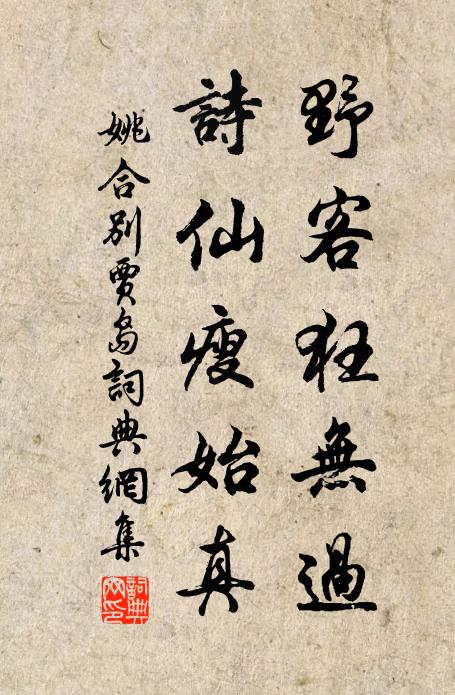 野客狂無過
詩仙瘦始真
姚合別賈島詞典網集
詞典網印